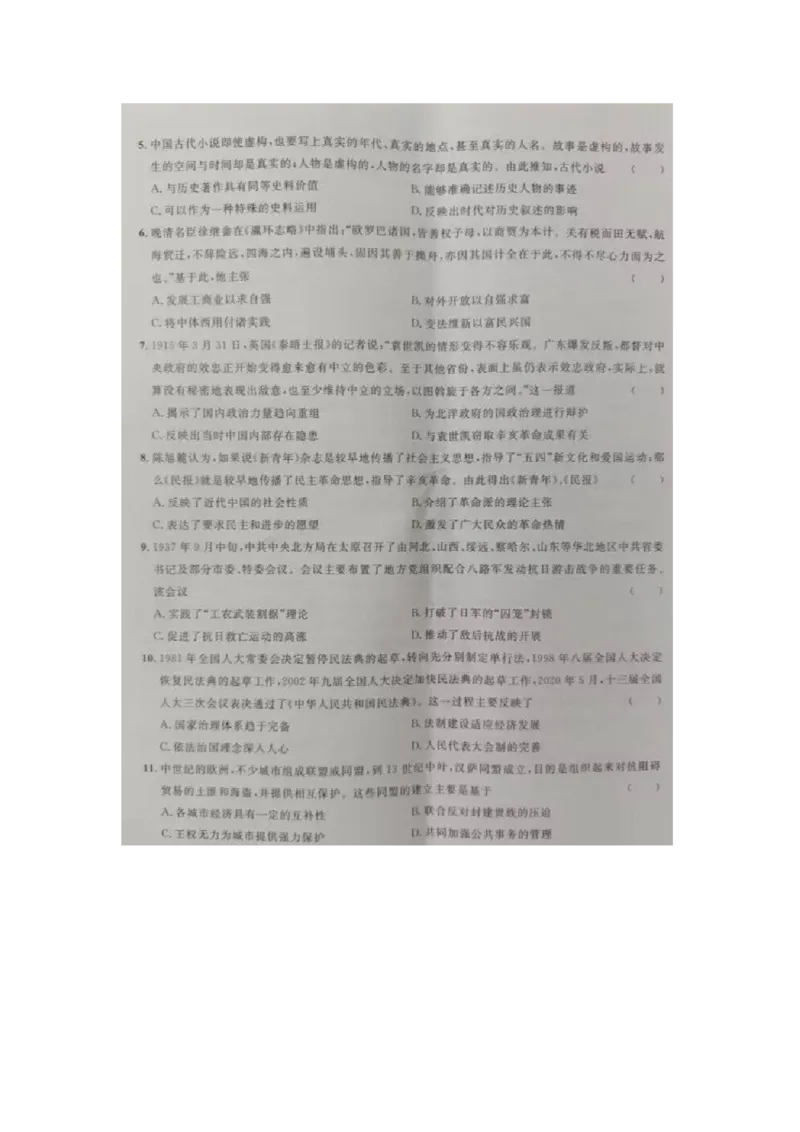 5. 中国古代小说即使虚构,也要写上真实的年代、真实的地点,甚至真实的人名。故事是虚构的,故事发
生的空间与时间却是真实的;人物是虚构的,人物的名字却是真实的。由此推知,古代小说 ( )
A. 与历史著作具有同等史料价值 B. 能够准确记述历史人物的事迹
C. 可以作为一种特殊的史料运用 D. 反映出时代对历史叙述的影响
6. 晚清名臣徐继畲在《瀛环志略》中指出:“欧罗巴诸国,皆善权子母,以商贾为本计。关有税而田无赋,航
海贸迁,不辞险远,四海之内,遍设埔头,固因其善于操舟,亦因其国计全在于此,不得不尽心力而为之
也。”基于此,他主张 ( )
A. 发展工商业以求自强 B. 对外开放以自强求富
C. 将中体西用付诸实践 D. 变法维新以富民兴国
7. 1915 年 3 月 31 日,英国《泰晤士报》的记者说:“袁世凯的情形变得不容乐观。广东爆发反叛,都督对中
央政府的效忠正开始变得愈来愈有中立的色彩。至于其他省份,表面上虽仍表示效忠政府,实际上,就
算没有秘密地表现出敌意,也至少维持中立的立场,以图斡旋于各方之间。”这一报道 ( )
A. 揭示了国内政治力量趋向重组 B. 为北洋政府的国政治理进行辩护
C. 反映出当时中国内部存在隐患 D. 与袁世凯窃取辛亥革命成果有关
8. 陈旭麓认为,如果说《新青年》杂志是较早地传播了社会主义思想,指导了“五四”新文化和爱国运动;那
么《民报》就是较早地传播了民主革命思想,指导了辛亥革命。由此得出《新青年》、《民报》 ( )
A. 反映了近代中国的社会性质 B. 介绍了革命派的理论主张
C. 表达了要求民主和进步的愿望 D. 激发了广大民众的革命热情
9. 1937 年 9 月中旬,中共中央北方局在太原召开了由河北、山西、绥远、察哈尔、山东等华北地区中共省委
书记及部分市委、特委会议。会议主要布置了地方党组织配合八路军发动抗日游击战争的重要任务。
该会议 ( )
A. 实践了“工农武装割据”理论 B. 打破了日军的“囚笼”封锁
C. 促进了抗日救亡运动的高涨 D. 推动了敌后抗战的开展
10. 1981 年全国人大常委会决定暂停民法典的起草,转向先分别制定单行法,1998 年八届全国人大决定
恢复民法典的起草工作,2002 年九届全国人大决定加快民法典的起草工作,2020 年 5 月,十三届全国
人大三次会议表决通过了《中华人民共和国民法典》。这一过程主要反映了 ( )
A. 国家治理体系趋于完备 B. 法制建设适应经济发展
C. 依法治国理念深入人心 D. 人民代表大会制的完善
11. 中世纪的欧洲,不少城市组成联盟或同盟,到 13 世纪中叶,汉萨同盟成立,目的是组织起来对抗阻碍
贸易的土匪和海盗,并提供相互保护。这些同盟的建立主要是基于 ( )
A. 各城市经济具有一定的互补性 B. 联合反对封建贵族的压迫
C. 王权无力为城市提供强力保护 D. 共同加强公共事务的管理